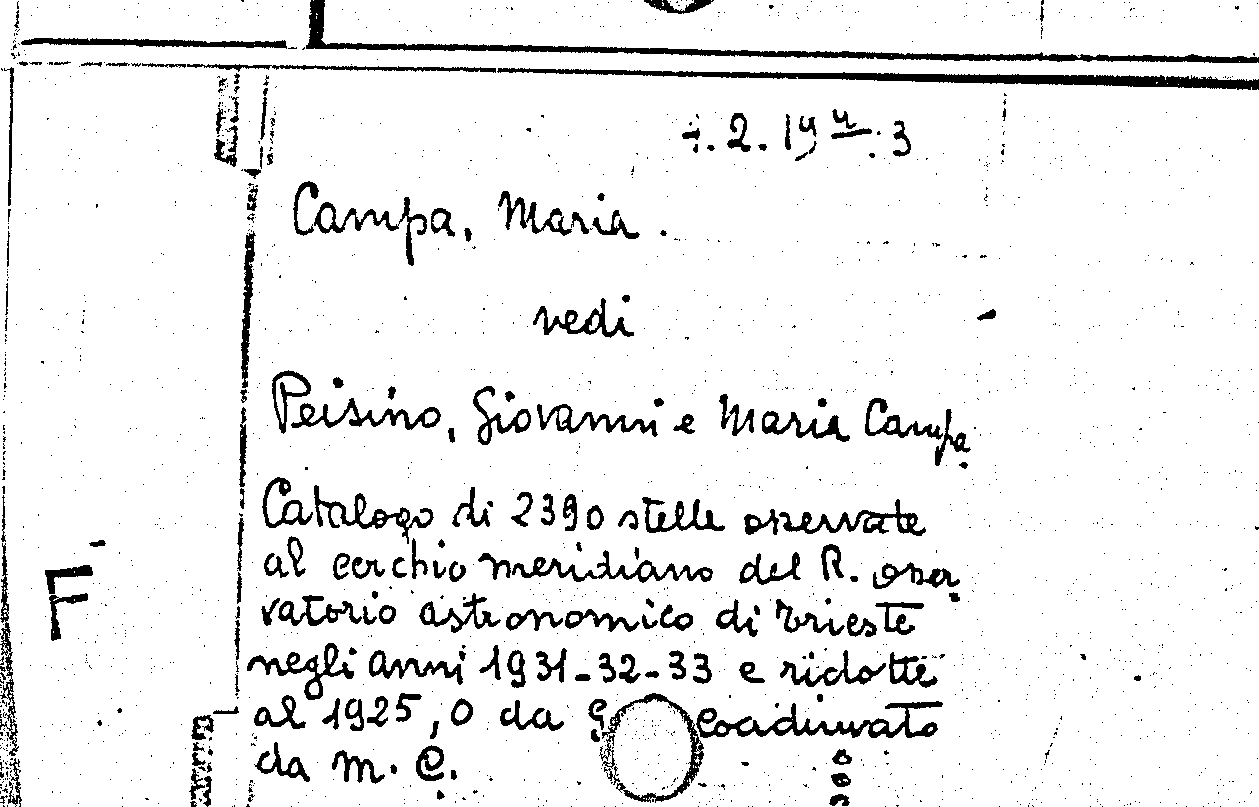 2. 19 4. 3
Campa, Maria.
vedi
Peisino, Giovanni e Maria Campa.
Catalogo di 2390 stelle osservate
al cerchio meridiano del R. osser-
vatorio astronomico di Trieste
negli anni 1931-32-33 e ridotte
F
al 1925,0 da G. coadiuvato
da M. C.